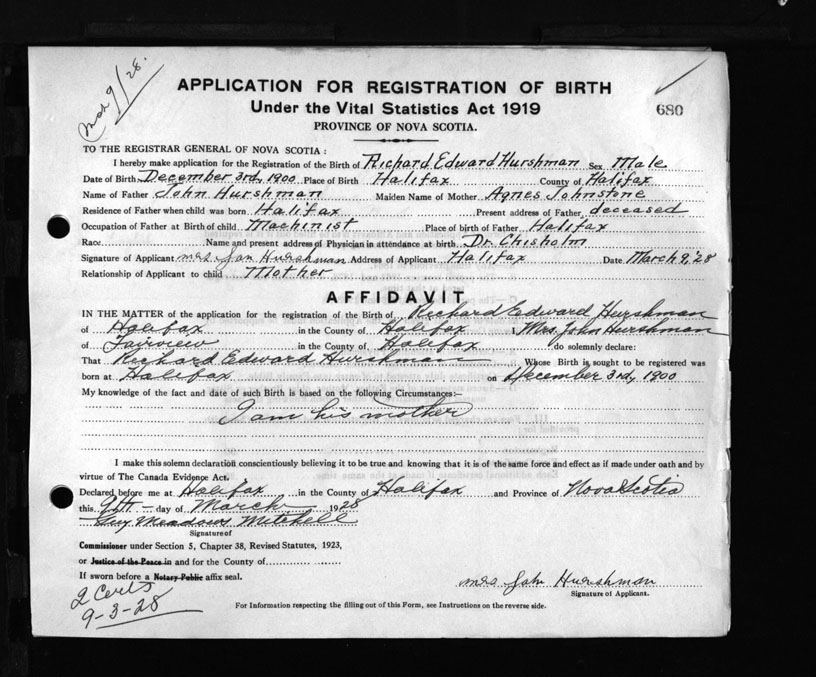 Mch 9/28.
APPLICATION FOR REGISTRATION OF BIRTH
Under the Vital Statistics Act 1919
680
PROVINCE OF NOVA SCOTIA.
TO THE REGISTRAR GENERAL OF NOVA SCOTIA :
I hereby make application for the Registration of the Birth of Richard Edward Hurshman Sex Male
Date of Birth December 3rd, 1900 Place of Birth Halifax County of Halifax
Name of Father John Hurshman Maiden Name of Mother Agnes Johnstone
Residence of Father when child was born Halifax Present address of Father deceased
Occupation of Father at Birth of child Machinist Place of birth of Father Halifax
Race Name and present address of Physician in attendance at birth Dr. Chisholm
Signature of Applicant mrs John Hurshman Address of Applicant Halifax Date March 9, '28
Relationship of Applicant to child Mother
AFFIDAVIT
IN THE MATTER of the application for the registration of the Birth of Richard Edward Hurshman
of Halifax in the County of Halifax I, Mrs. John Hurshman
of Fairview in the County of Halifax do solemnly declare:
That Richard Edward Hurshman Whose Birth is sought to be registered was
born at Halifax on December 3rd, 1900
My knowledge of the fact and date of such Birth is based on the following Circumstances:—
I am his mother
I make this solemn declaration conscientiously believing it to be true and knowing that it is of the same force and effect as if made under oath and by
virtue of The Canada Evidence Act.
Declared before me at Halifax in the County of Halifax and Province of Nova Scotia
this 9th day of March 1928
Guy Meadows Mitchell
Signature of
Commissioner under Section 5, Chapter 38, Revised Statutes, 1923,
or Justice of the Peace in and for the County of
If sworn before a Notary Public affix seal.
mrs John Hurshman
Signature of Applicant.
2 Certs
9-3-28
For Information respecting the filling out of this Form, see Instructions on the reverse side.